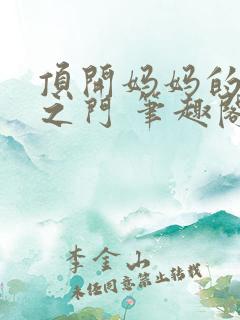 頂開妈妈的
之门 筆趣阁
李金山
未经同意禁止转载